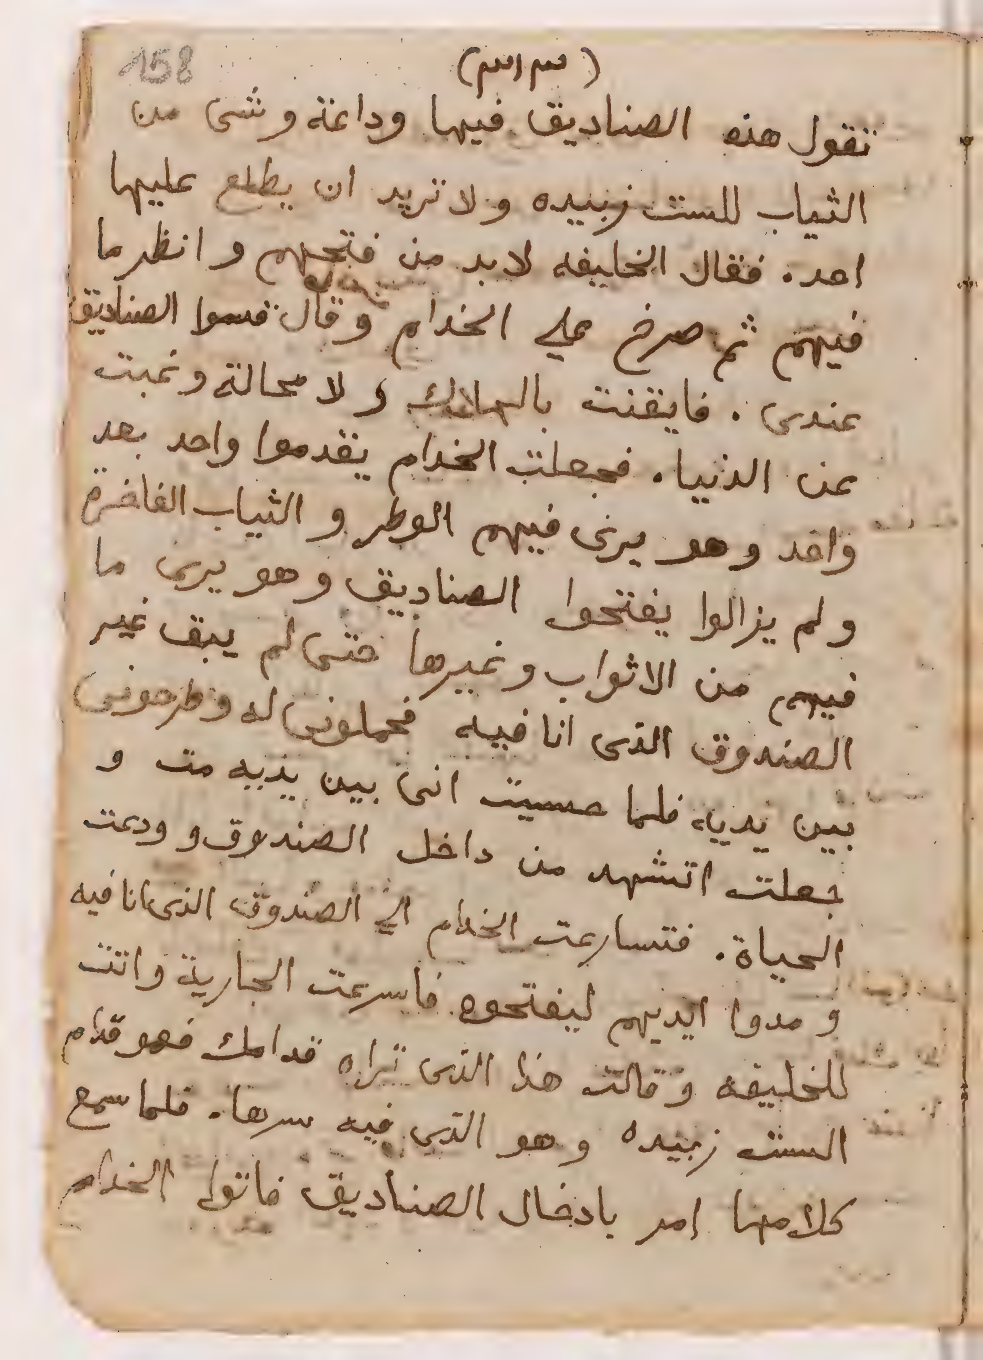 158
(٣١٣)
تقول هذه الصناديق فيها وداعة وشى من
الثياب للست زبيده ولا تريد ان يطلع عليها
احد. فقال الخليفه لا بد من فتحهم وانظر ما
فيهم ثم صرخ على الخدام وقال قدموا الصناديق
عندى. فايقنت بالهلاك ولا محالة وغبت
عن الدنيا. فجعلت الخدام يقدموا واحد بعد
واحد وهو يرى فيهم العطر والثياب الفاخرة
ولم يزالوا يفتحوا الصناديق وهو يرى ما
فيهم من الاثواب وغيرها حتى لم يبق غير
الصندوق الذى انا فيه فحملونى له وطرحونى
بين يديه فلما حسيت انى بين يديه مت و
جعلت اتشهد من داخل الصندوق وودعت
الحياة. فتسارعت الخدام الى الصندوق الذى انا فيه
ومدوا ايديهم ليفتحوه فاسرعت الجارية واتت
للخليفه وقالت هذا الذى تراه قدامك فهو قدام
الست زبيده وهو الذى فيه سرها. فلما سمع
كلامها امر بادخال الصناديق فاتوا الخدام